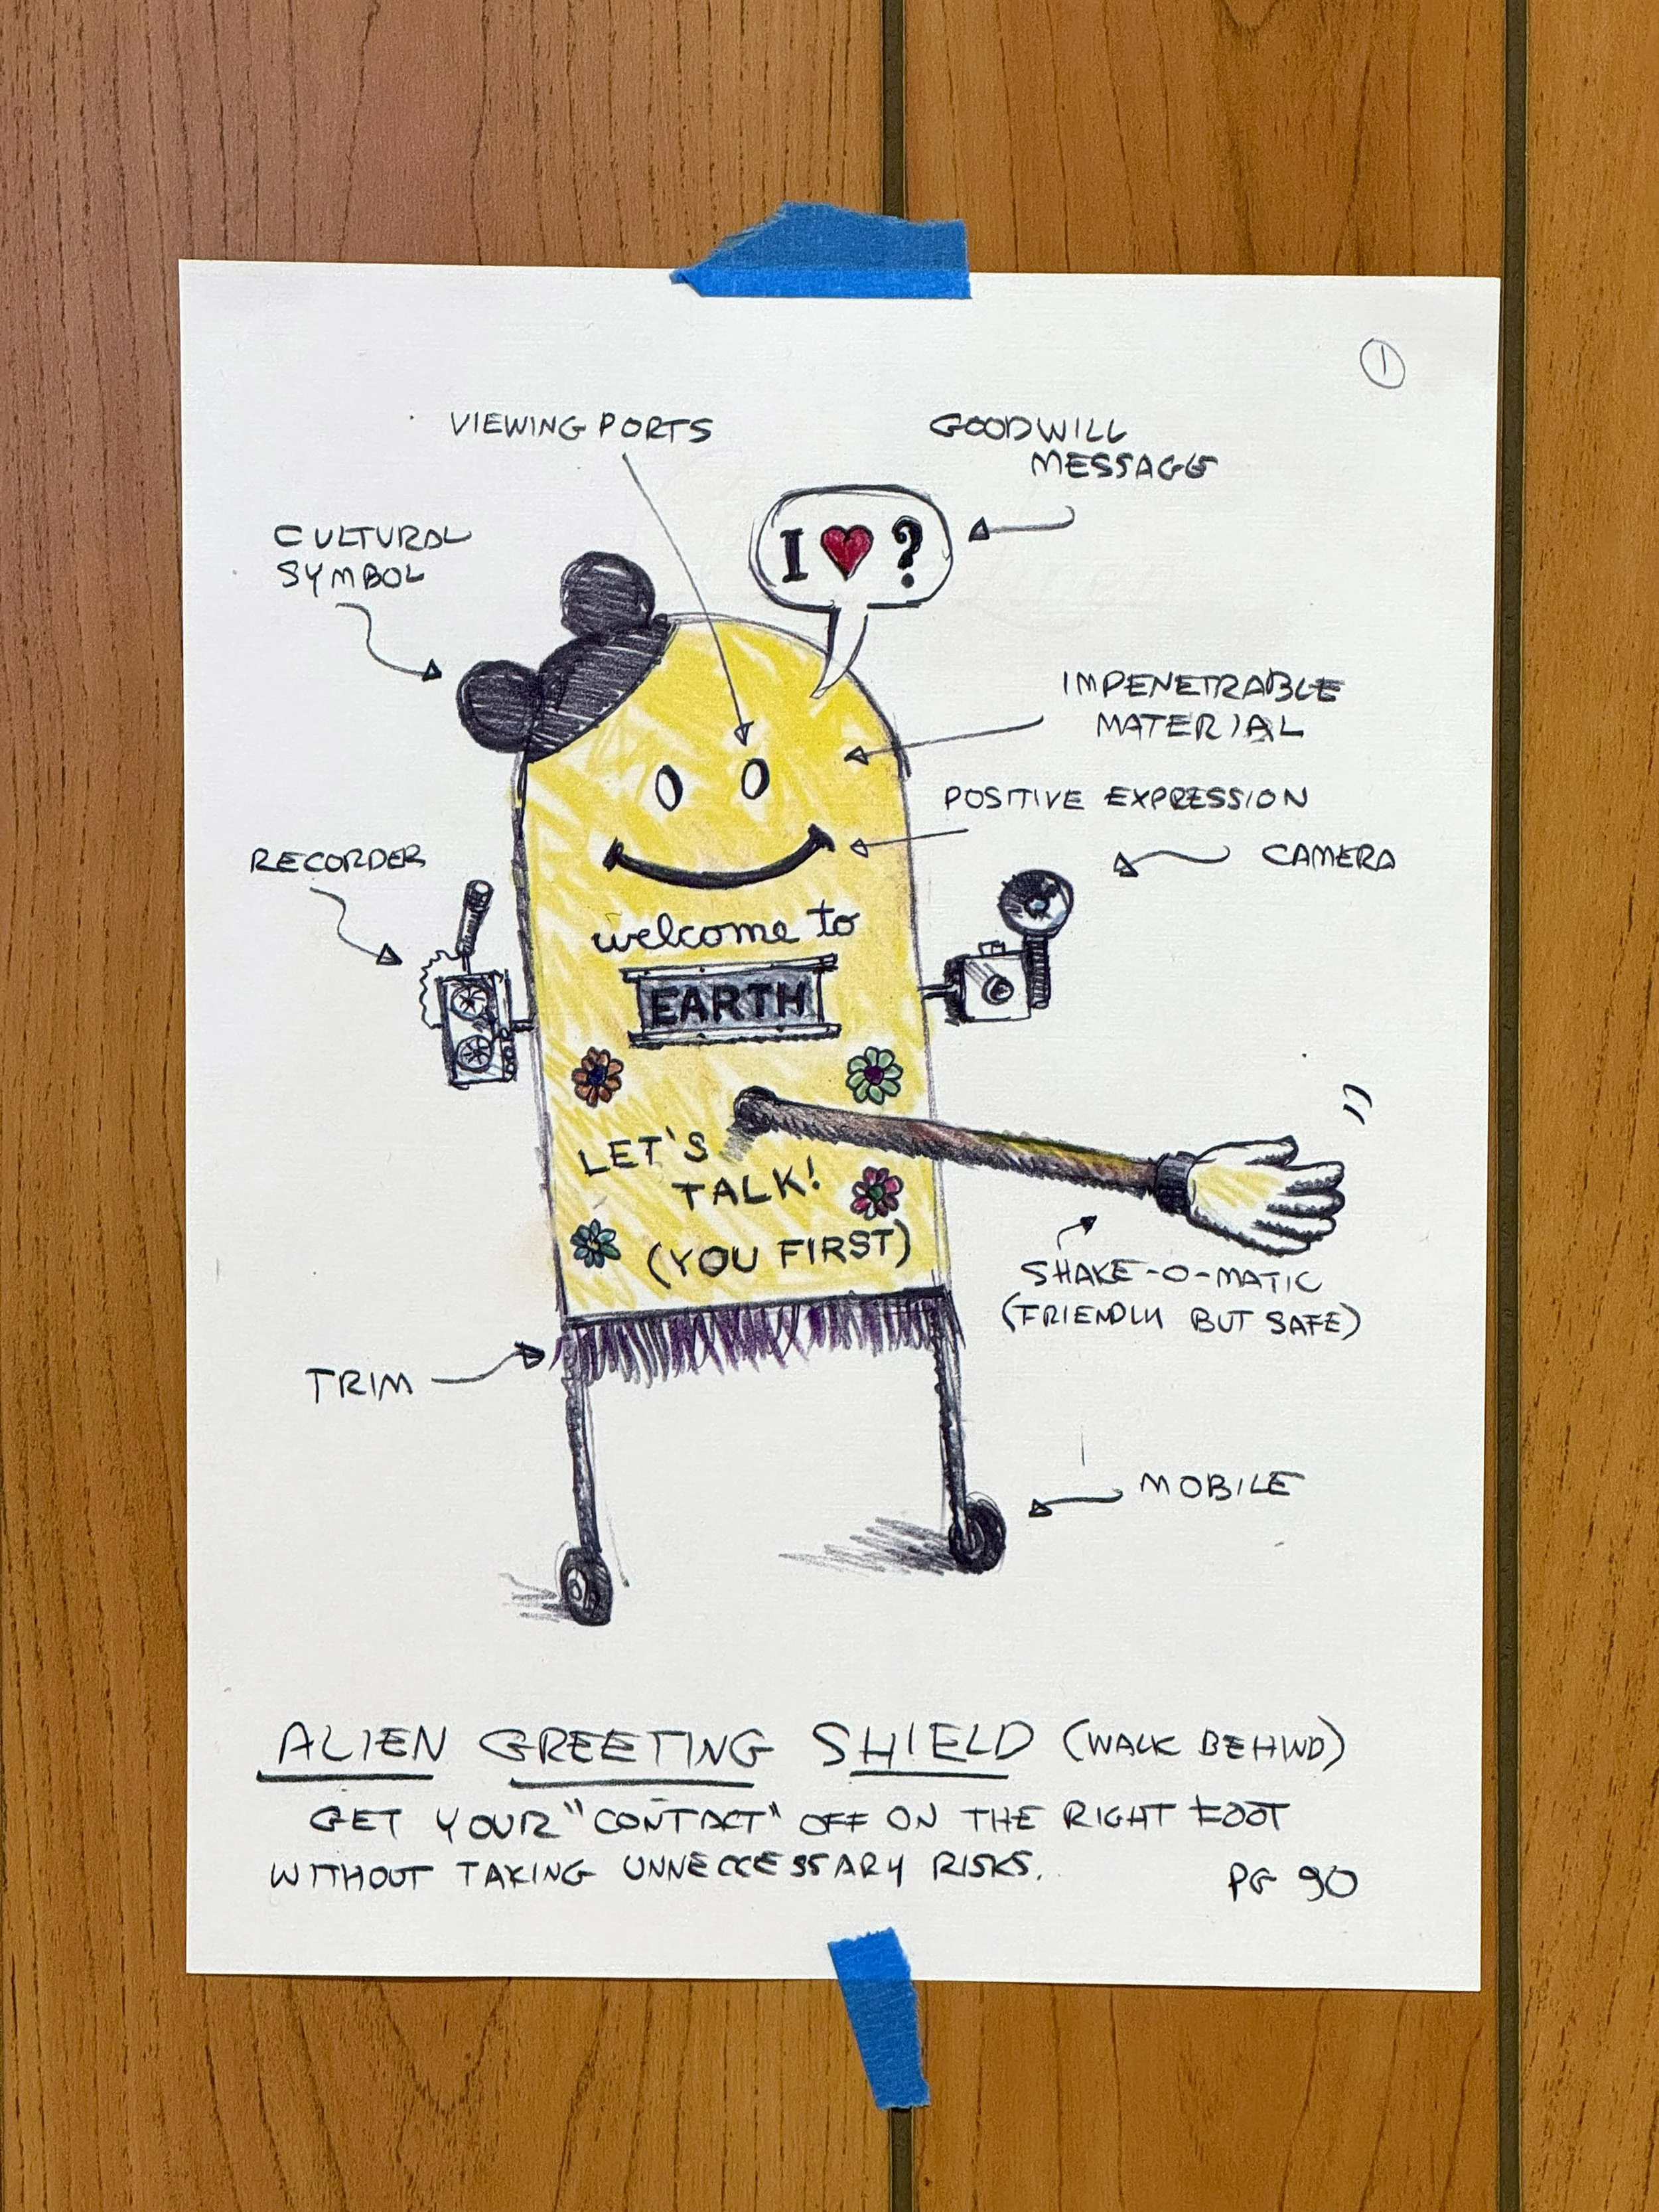 1
VIEWING PORTS
GOODWILL
MESSAGE
CULTURAL
SYMBOL
I ♥ ?
IMPENETRABLE
MATERIAL
POSITIVE EXPRESSION
RECORDER
CAMERA
welcome to
EARTH
LET'S
TALK!
(YOU FIRST)
SHAKE-O-MATIC
(FRIENDLY BUT SAFE)
TRIM
MOBILE
ALIEN GREETING SHIELD (WALK BEHIND)
GET YOUR "CONTACT" OFF ON THE RIGHT FOOT
WITHOUT TAKING UNNECCESSARY RISKS.
PG 90